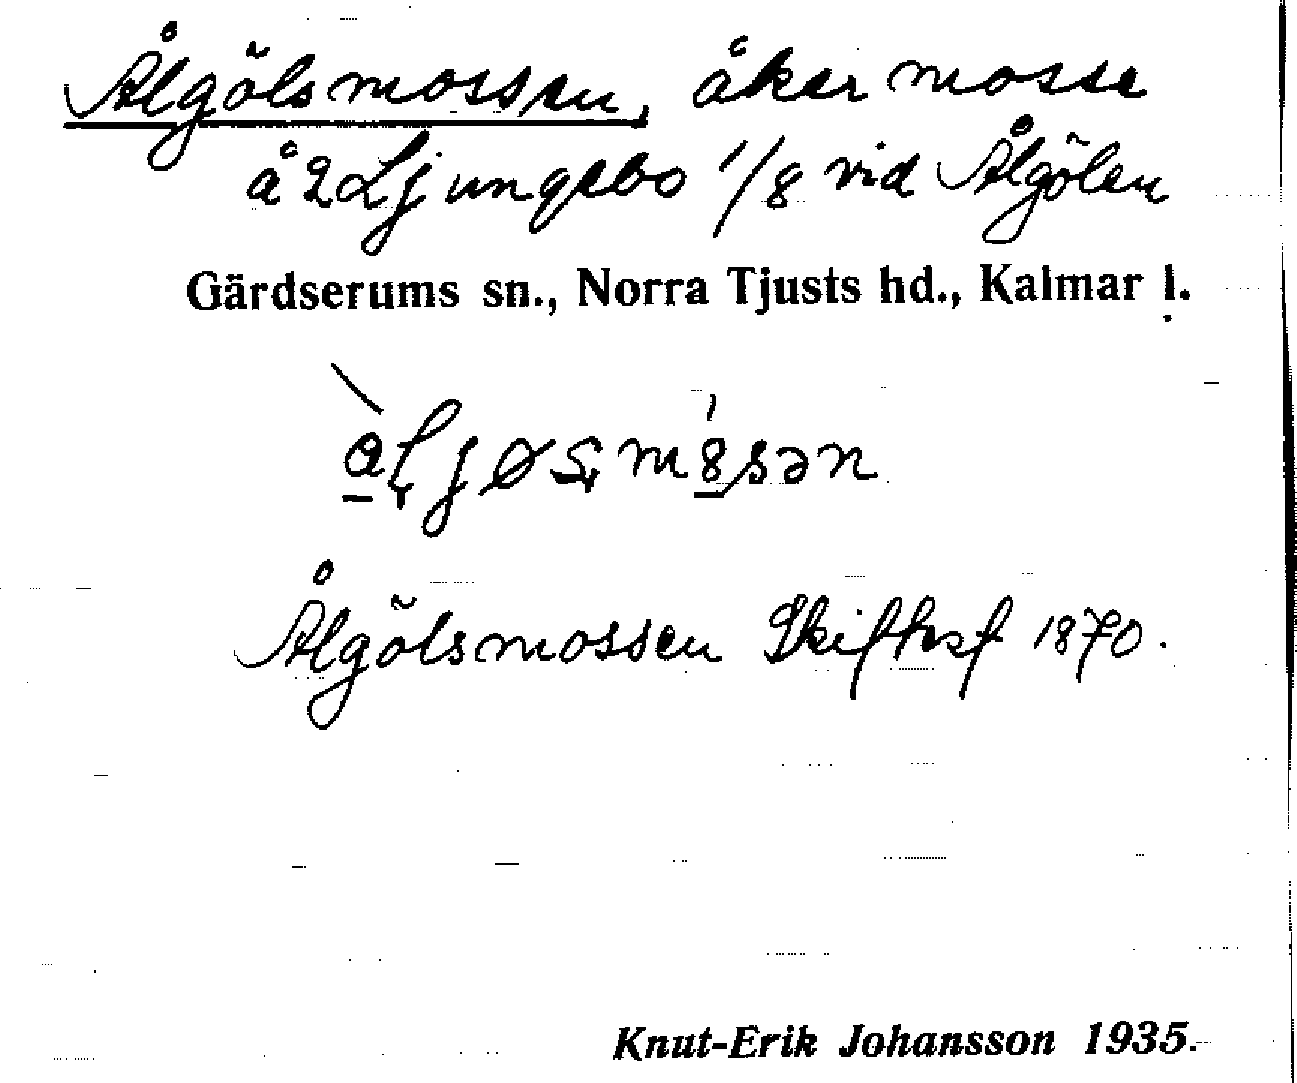 Ålgölsmossen, åker mosse
å 2 Ljungsbo 1/8 vid Ålgölen
Gärdserums sn., Norra Tjusts hd., Kalmar l.
Ålgölsmossen Skiftesf 1870.
Knut-Erik Johansson 1935.